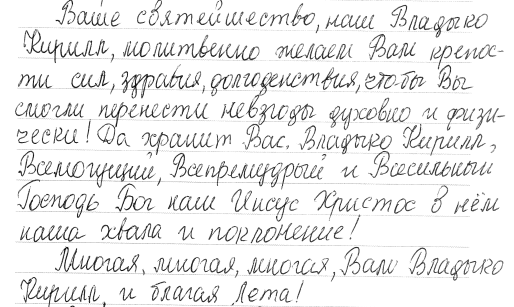 Ваше святейшество, наш Владыко
Кирилл, молитвенно желаем Вам крепос-
ти сил, здравия, долгоденствия, чтобы Вы
смогли перенести невзгоды духовно и физи-
чески! Да хранит Вас, Владыко Кирилл,
Всемогущий, Всепремудрый и Всесильный
Господь Бог наш Иисус Христос в нём
наша хвала и поклонение!
Многая, многая, многая, Вам Владыко
Кирилл, и благая лета!